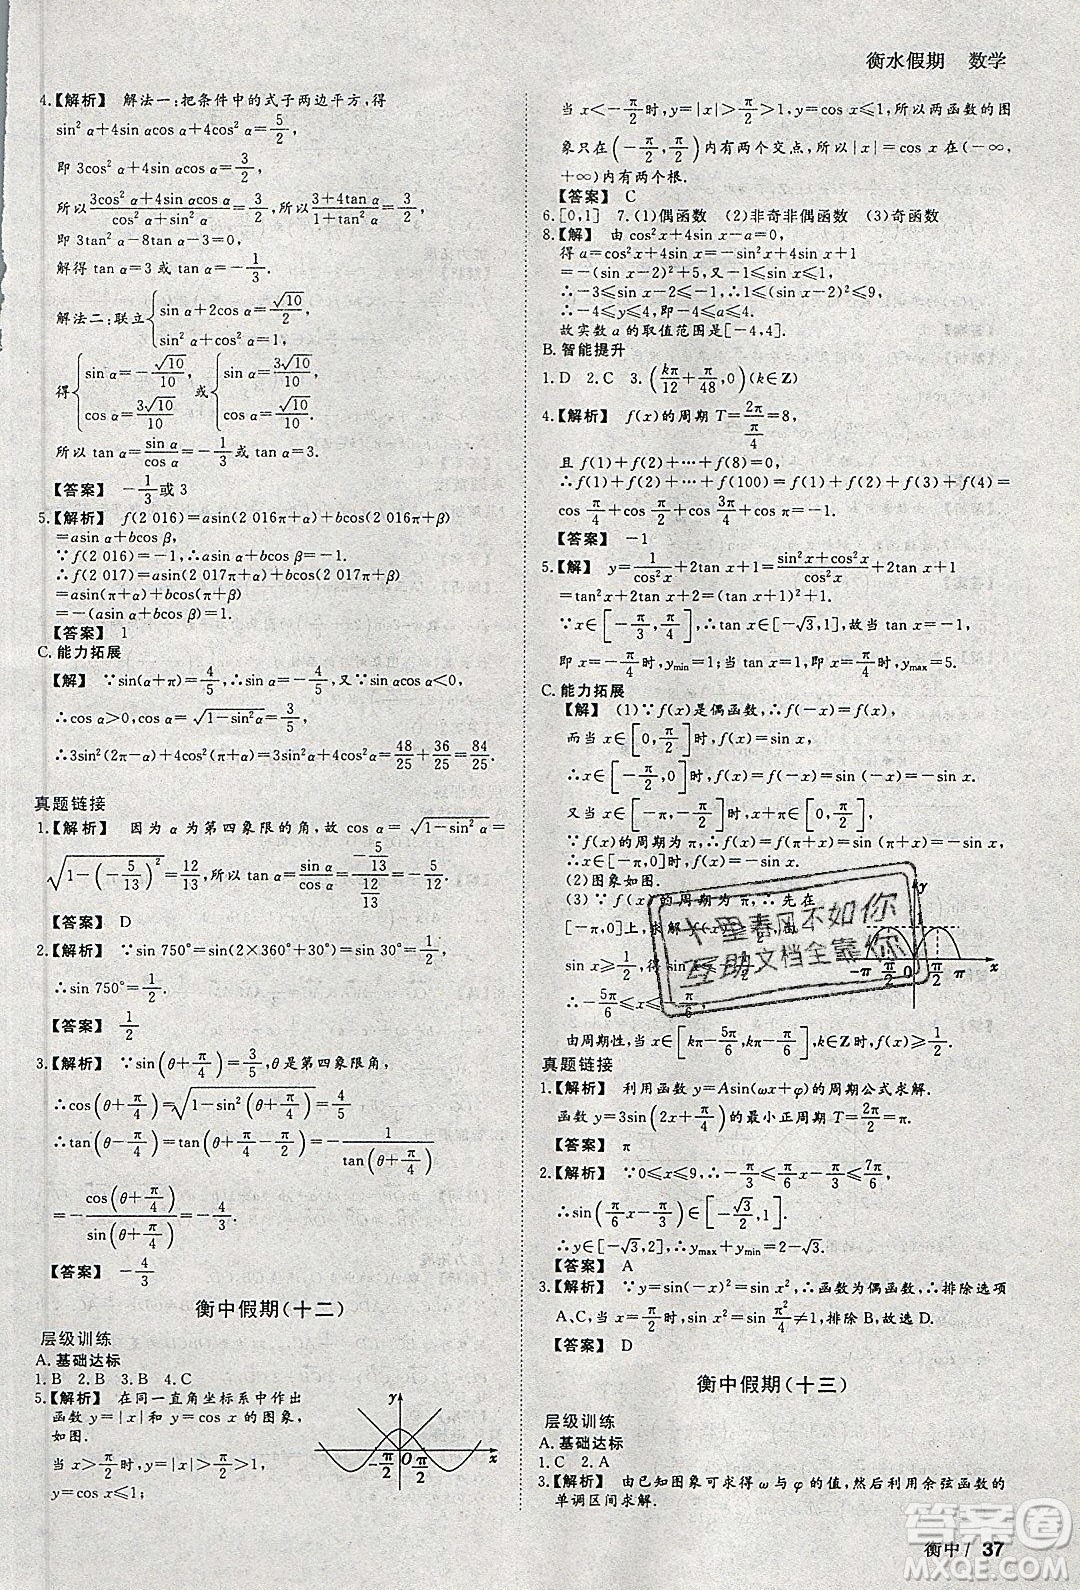 衡水假期 数学
4.【解析】 解法一:把条件中的式子两边平方,得
sin² α+4sin αcos α+4cos² α=5/2,
即 3cos² α+4sin αcos α=3/2,
所以 (3cos² α+4sin αcos α)/(cos² α+sin² α)=3/2,所以 (3+4tan α)/(1+tan² α)=3/2,
即 3tan² α-8tan α-3=0,
解得 tan α=3 或 tan α=-1/3.
解法二:联立{sin α+2cos α=√10/2, sin² α+cos² α=1,
得{sin α=-√10/10, cos α=3√10/10 或{sin α=3√10/10, cos α=√10/10,
所以 tan α=sin α/cos α=-1/3或 tan α=3.
【答案】 -1/3或 3
5.【解析】 f(2 016)=asin(2 016π+α)+bcos(2 016π+β)
=asin α+bcos β=-1.
∵f(2 016)=-1,∴asin α+bcos β=-1.
∴f(2 017)=asin(2 017π+α)+bcos(2 017π+β)
=asin(π+α)+bcos(π+β)
=-(asin α+bcos β)=1.
【答案】 1
C. 能力拓展
【解】 ∵sin(α+π)=4/5,∴sin α=-4/5,又∵sin αcos α<0,
∴cos α>0,cos α=√(1-sin²α)=3/5,
∴3sin²(2π-α)+cos²(4π+α)=3sin²α+cos²α=48/25+36/25=84/25.
真题链接
1.【解析】 因为 α 为第四象限的角,故 cos α=√(1-sin² α)=
√(1-(-5/13)²)=12/13,所以 tan α=sin α/cos α=(-5/13)/(12/13)=-5/12.
【答案】 D
2.【解析】 ∵sin 750°=sin(2×360°+30°)=sin 30°=1/2,
∴sin 750°=1/2.
【答案】 1/2
3.【解析】 ∵sin(θ+π/4)=3/5,θ是第四象限角,
∴cos(θ+π/4)=√(1-sin²(θ+π/4))=4/5,
∴tan(θ-π/4)=tan(θ+π/4-π/2)=-1/tan(θ+π/4)
=-cos(θ+π/4)/sin(θ+π/4)=-4/3.
【答案】 -4/3
衡中假期(十二)
层级训练
A. 基础达标
1. B 2. B 3. B 4. B
5.【解析】 在同一直角坐标系中作出
函数 y=|x|和 y=cos x 的图象,
如图.
当 x>π/2时,y=|x|>π/2>1,
y=cos x≤1;
-π/2 O π/2 x
当 x<-π/2时,y=|x|>π/2>1,y=cos x≤1,所以两函数的图
象只在(-π/2,π/2)内有两个交点,所以|x|=cos x在(-∞,
+∞)内有两个根.
【答案】 C
6.[0,1] 7.(1)偶函数 (2)非奇非偶函数 (3)奇函数
8.【解】 由 cos²x+4sin x-a=0,
得 a=cos²x+4sin x=-sin²x+4sin x+1
=-(sin x-2)²+5,又-1≤sin x≤1,
∴-3≤sin x-2≤-1,∴1≤(sin x-2)²≤9.
∴-4≤-(sin x-2)²+5≤4,即-4≤a≤4.
故实数 a 的取值范围是[-4,4].
B. 智能提升
1. D 2. C 3.(kπ/12+π/48,0)(k∈Z)
4.【解析】 f(x)的周期 T=2π/(π/4)=8,
且 f(1)+f(2)+…+f(8)=0,
∴f(1)+f(2)+…+f(100)=f(1)+f(2)+f(3)+f(4)=
cos π/4+cos 2π/4+cos 3π/4+cos π=-1.
【答案】 -1
5.【解】 y=1/cos²x+2tan x+1=(sin²x+cos²x)/cos²x+2tan x+1
=tan²x+2tan x+2=(tan x+1)²+1.
∵x∈[-π/3,π/4],∴tan x∈[-√3,1],故当 tan x=-1,
即 x=-π/4时,ymin=1;当tan x=1,即x=π/4时,ymax=5.
C. 能力拓展
【解】 (1)∵f(x)是偶函数,∴f(-x)=f(x),
而当 x∈[0,π/2]时,f(x)=sin x,
∴x∈[-π/2,0]时,f(x)=f(-x)=sin (-x)=-sin x,
∴x∈[-π,-π/2]时,f(x)=f(x+π)=sin(π+x)=-sin x,
∵f(x)的周期为 π,
∴x∈[-π,0]时,f(x)=-sin x.
(2)图象如图.
(3)∵f(x)的周期为 π,∴先在
[-π,0]上,求解
由周期性,当x∈[kπ-5π/6,kπ-π/6],k∈Z时,f(x)≥1/2.
-π -π/2 0 π/2 π x
y
真题链接
1.【解析】 利用函数 y=Asin(ωx+φ)的周期公式求解.
函数 y=3sin(2x+π/4)的最小正周期 T=2π/2=π.
【答案】 π
2.【解析】 ∵0≤x≤9,∴-π/3≤π/6x-π/3≤7π/6,
∴sin(π/6x-π/3)∈[-√3/2,1].
∴y∈[-√3,2],∴ymax+ymin=2-√3.
【答案】 A
3.【解析】 ∵sin(-x)²=sin x²,∴函数为偶函数,∴排除选项
A、C,当 x=π/2时,y=sin π²/4≠1,排除 B,故选 D.
【答案】 D
衡中假期(十三)
层级训练
A. 基础达标
1. C 2. A
3.【解析】 由已知图象可求得 ω 与 φ 的值,然后利用余弦函数的
单调区间求解.
十里春风不如你
互助文档全靠你
答案圈
衡中/ 37